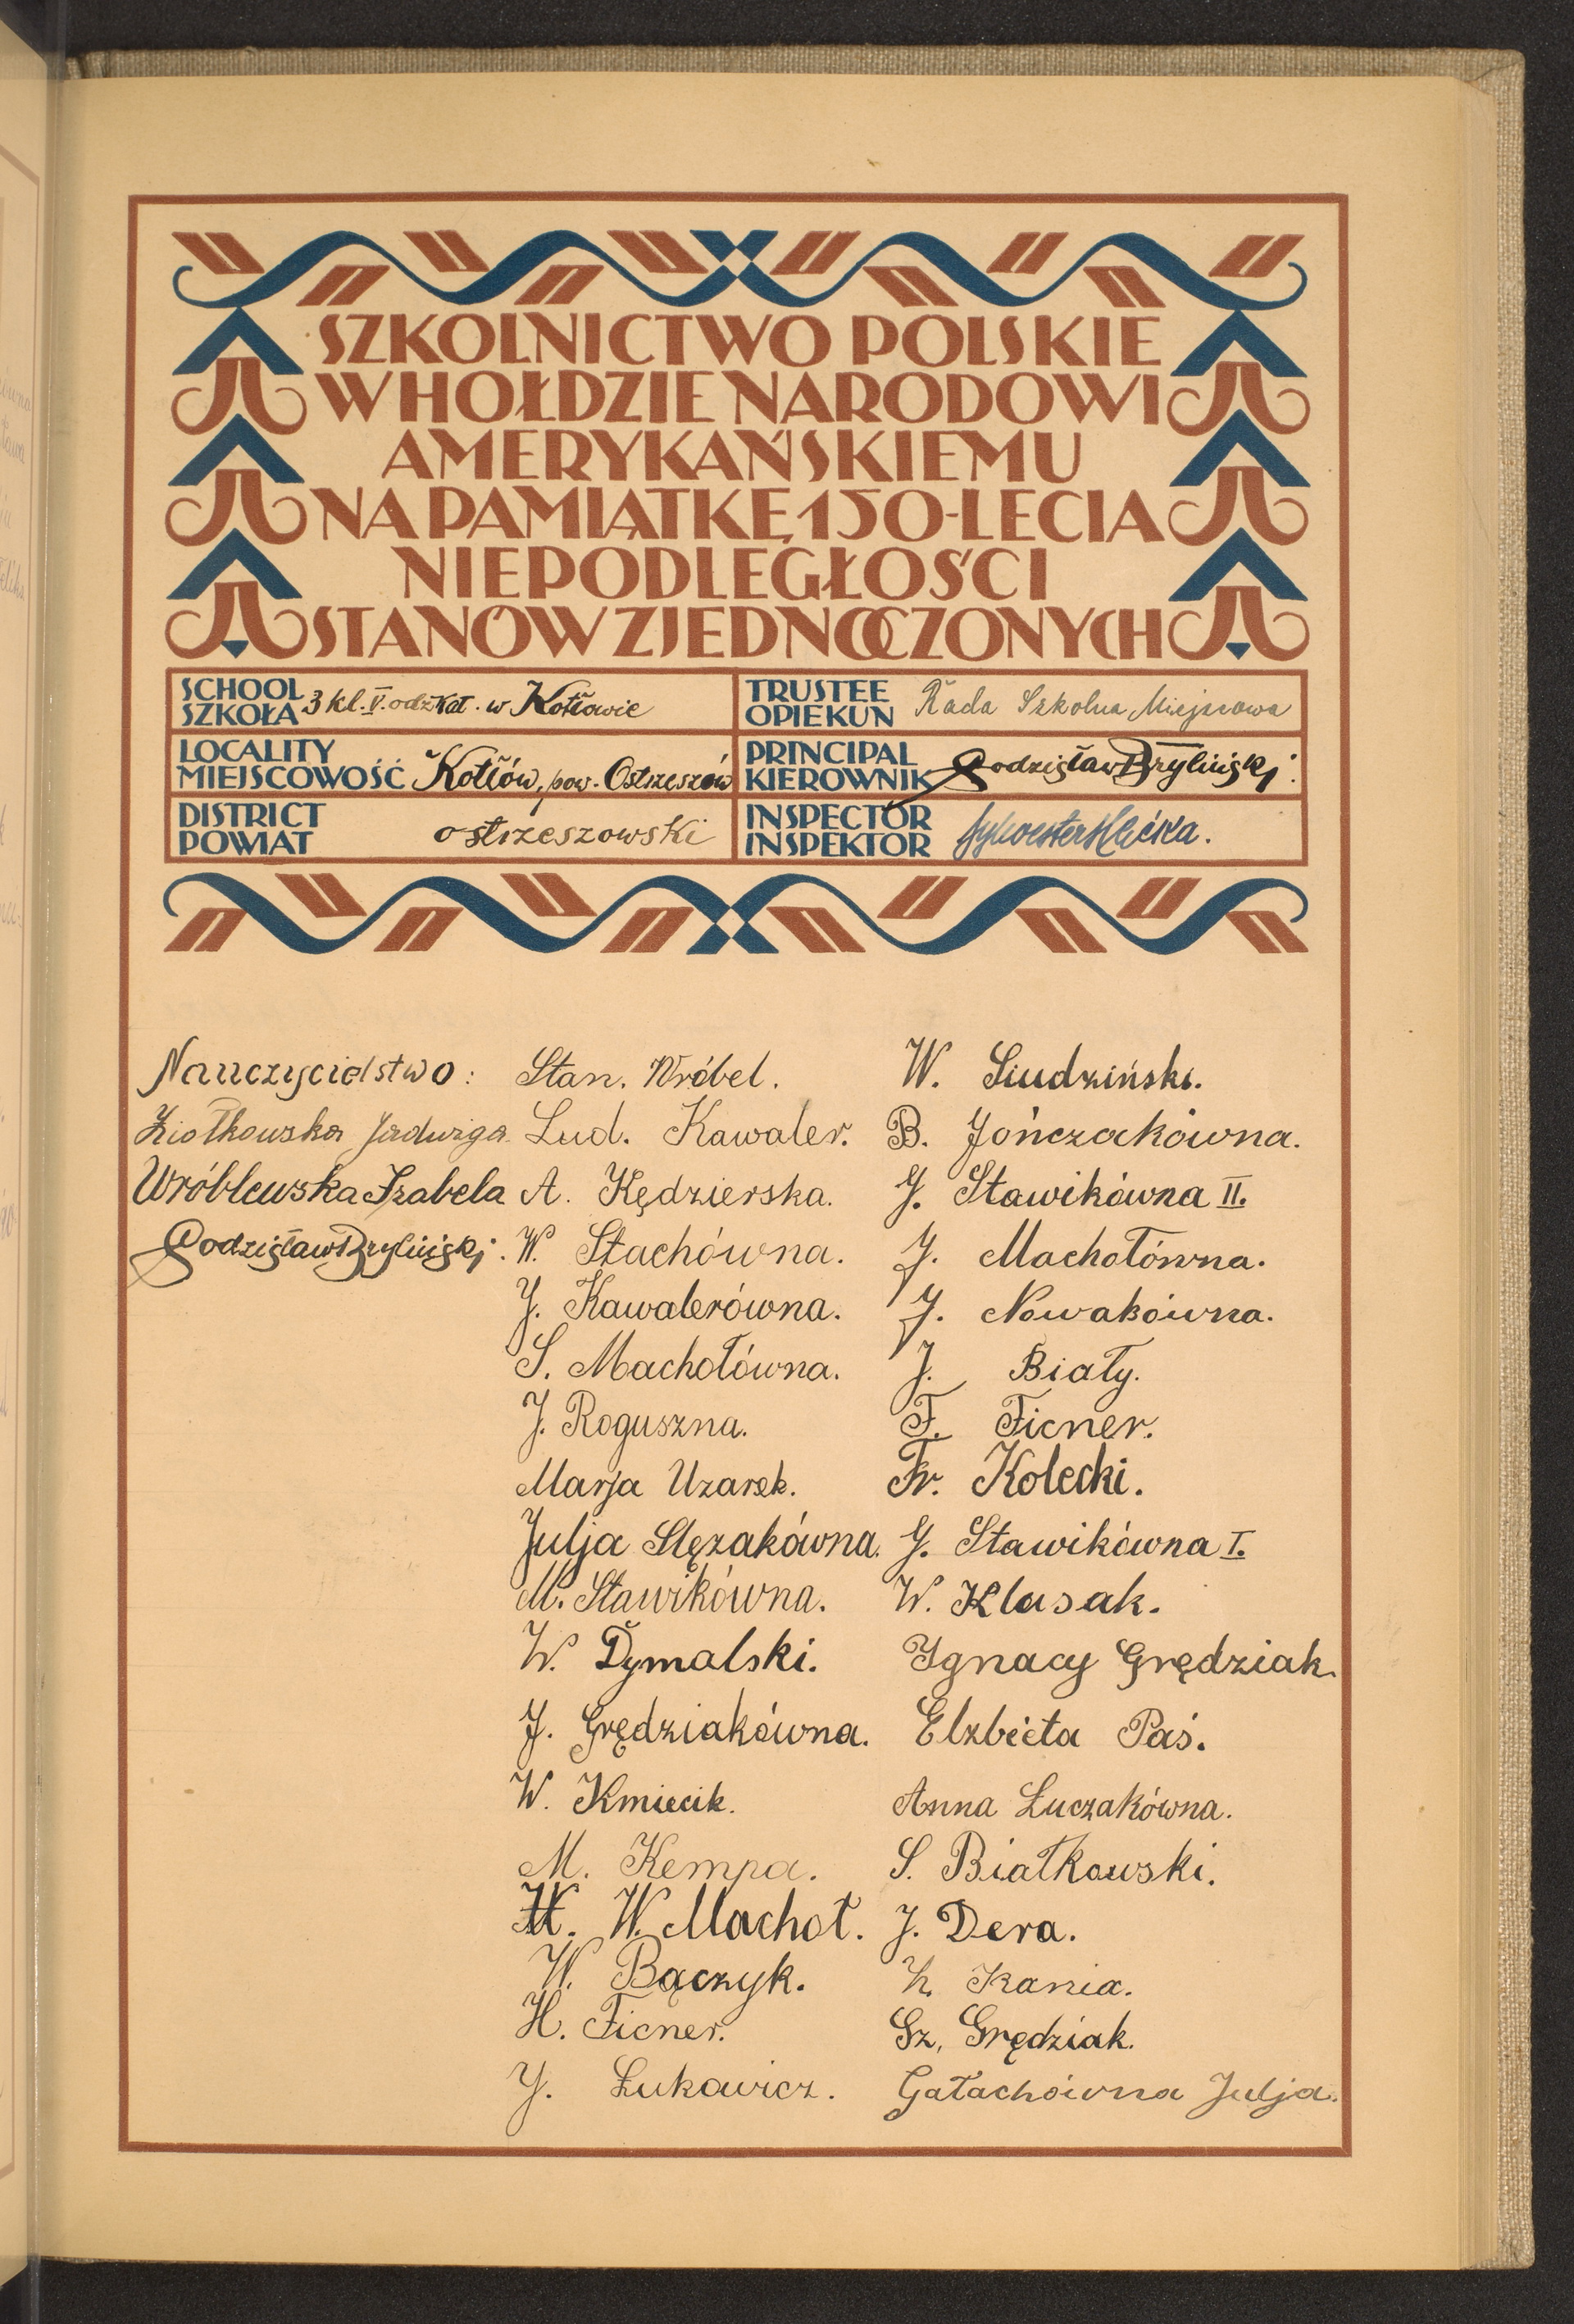 SZKOLNICTWO POLSKIE
W HOŁDZIE NARODOWI
AMERYKAŃSKIEMU
NA PAMIĄTKĘ 150-LECIA
NIEPODLEGŁOŚCI
STANÓW ZJEDNOCZONYCH
SCHOOL
SZKOŁA 3 kl. V. odz kat. w Kotłowie
TRUSTEE
OPIEKUN Rada Szkolna Miejscowa
LOCALITY
MIEJSCOWOŚĆ Kotłów, pow. Ostrzeszów
PRINCIPAL
KIEROWNIK Godzisław Bryliński.
DISTRICT
POWIAT ostrzeszowski
INSPECTOR
INSPEKTOR Sylwester
Nauczycielstwo:
Ziołkowska Jadwiga
Wróblewska Izabela
Godzisław Bryliński.
Stan. Wróbel.
Lud. Kawaler.
A. Kędzierska.
W. Stachówna.
J. Kawalerówna.
S. Machołówna.
J. Roguszna.
Marja Uzarek.
Julja Ślęzakówna.
M. Stawikówna.
W. Dymalski.
J. Grędziakówna.
W. Kmiecik.
M. Kempa.
W. Machoł.
W. Bączyk.
H. Ficner.
J. Łukowicz.
W. Siudziński.
B. Jończakówna.
J. Stawikówna II.
J. Machołówna.
J. Nowakówna.
J. Biały.
F. Ficner.
Fr. Kolecki.
J. Stawikówna I.
W. Klasak.
Ignacy Grędziak.
Elzbieta Paś.
Anna Łuczakówna.
S. Białkowski.
J. Dera.
Kania.
Sz. Grędziak.
Gałachówna Julja.